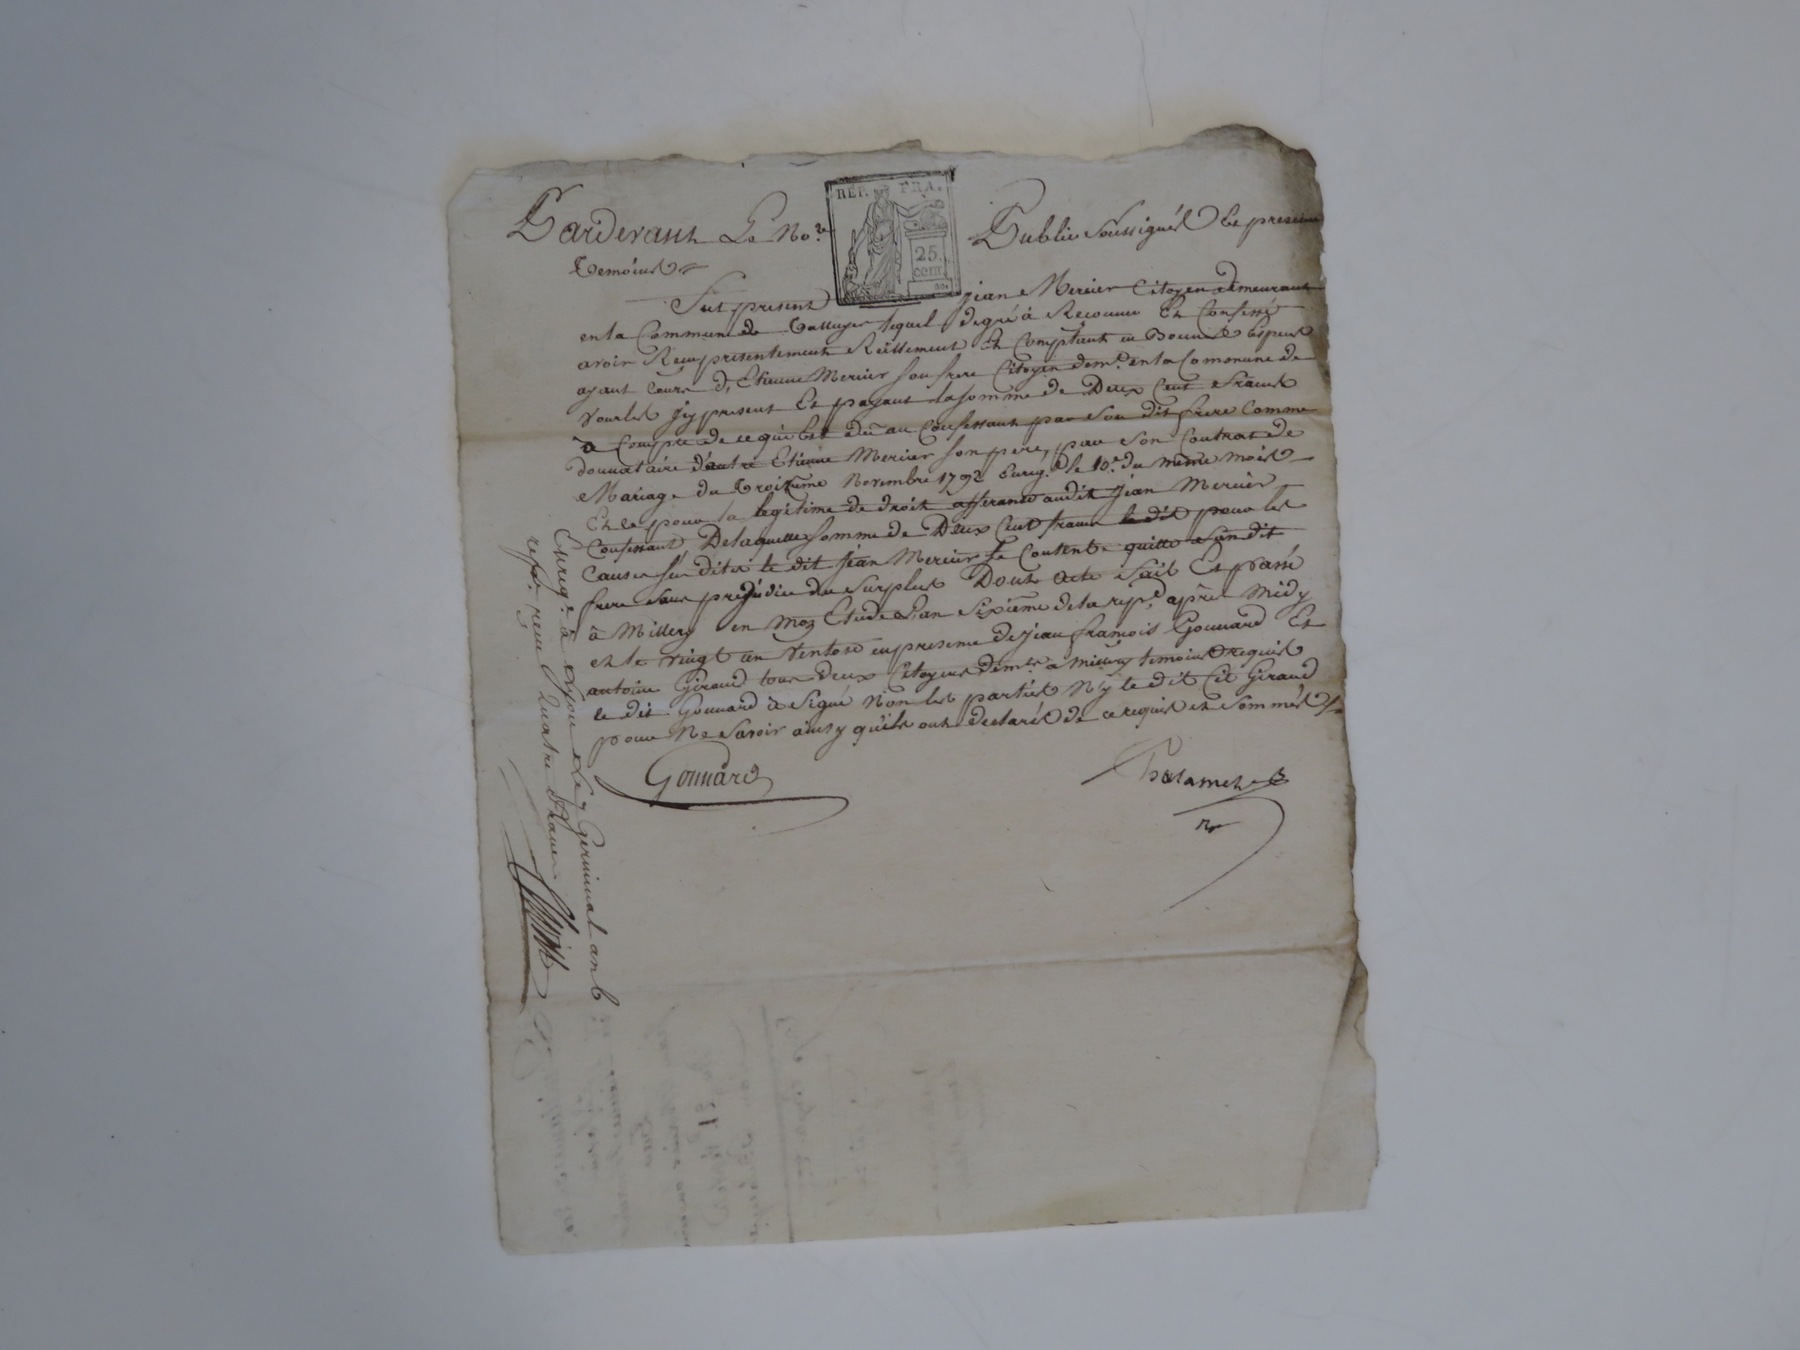 Pardevant Le No.re Public Soussigné Et presence
Temoins
REP. FRA.
25.
cent.
Fut present jean Mercier Citoyen demeurant
en la Commune de Taluyer lequel de gré à Reconnu Et Confessé
avoir Reçu presentement Réellement Et Comptant en Bonnes Espeses
ayant Cours d'Etienne Mercier son frere Citoyen dem.t en la Commune de
Vourles jcy present Et payant la somme de Deux Cent francs
à Compte de ce qui Est dû au Confessant par Son dit frere Comme
donnataire d'autre Etienne Mercier son pere, par son Contrat de
Mariage du Troizième Novembre 1792 Enreg.é le 10.e du meme mois
Et ce pour la legitime de droit afferante audit jean Mercier
Confessant De laquelle somme de Deux Cent francs le dit pour les
Causes sus dites le dit jean Mercier se Contente quitte son dit
frere sans prejudice du Surplus Dont Acte fait Et passé
à Millery en mon Etude L'an Sixième de la rep.e après Midy
et le vingt un Ventose en presence de jean françois Gonnard Et
antoine Giraud tous deux Citoyens dem.ts à Millery temoins requis
le dit Gonnard à Signé Non les parties Ny le dit Cit Giraud
pour Ne Savoir ainsy qu'ils ont declarés de ce requis et Sommés
Gonnard
Thalamel
Enreg.é à Lyon le 7 Germinal an 6
reçu quatre francs